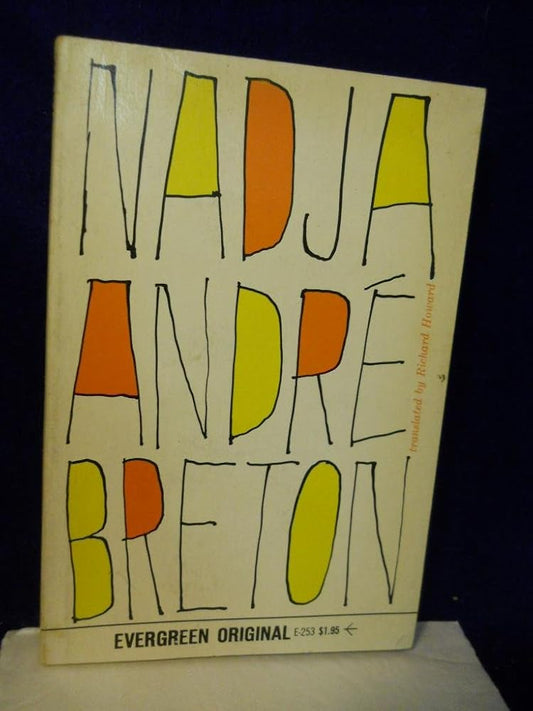 NADJA
ANDRÉ
translated by Richard Howard
BRETON
EVERGREEN ORIGINAL E-253 $1.95